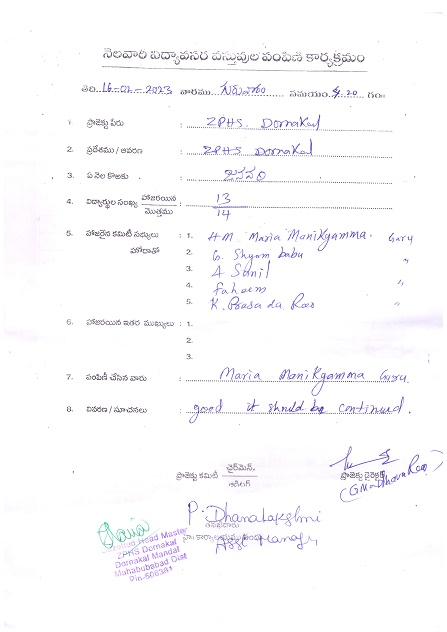 నెలవారీ విద్యావసర వస్తువుల పంపిణీ కార్యక్రమం
తేది. 16-02-2023 వారము గురువారం సమయం. 4.20 గం॥
1. ప్రాజెక్టు పేరు : ZPHS. Dornakal
2. ప్రదేశము / ఆవరణ : ZPHS Dornakal
3. ఏ నెల కొఱకు : జనవరి
4. విద్యార్థుల సంఖ్య హాజరయిన / మొత్తము : 13 / 14
5. హాజరైన కమిటీ సభ్యులు : 1. HM. Maria Manikgamma. Garu
హోదాతో 2. G. Shyam babu "
3. A Sunil
4. Faheem
5. K. Prasada Rao "
6. హాజరయిన ఇతర ముఖ్యులు : 1.
2.
3.
7. పంపిణీ చేసిన వారు : Maria Manikgamma Garu
8. వివరణ / సూచనలు : good it should be continued.
ప్రాజెక్టు కమిటీ ఛైర్మెన్.
ప్రాజెక్టు డైరెక్టర్
P. Dhanalakshmi
Head Master
ZPHS Dornakal
Dornakal Mandal
Mahabubabad Dist
Pin-506381